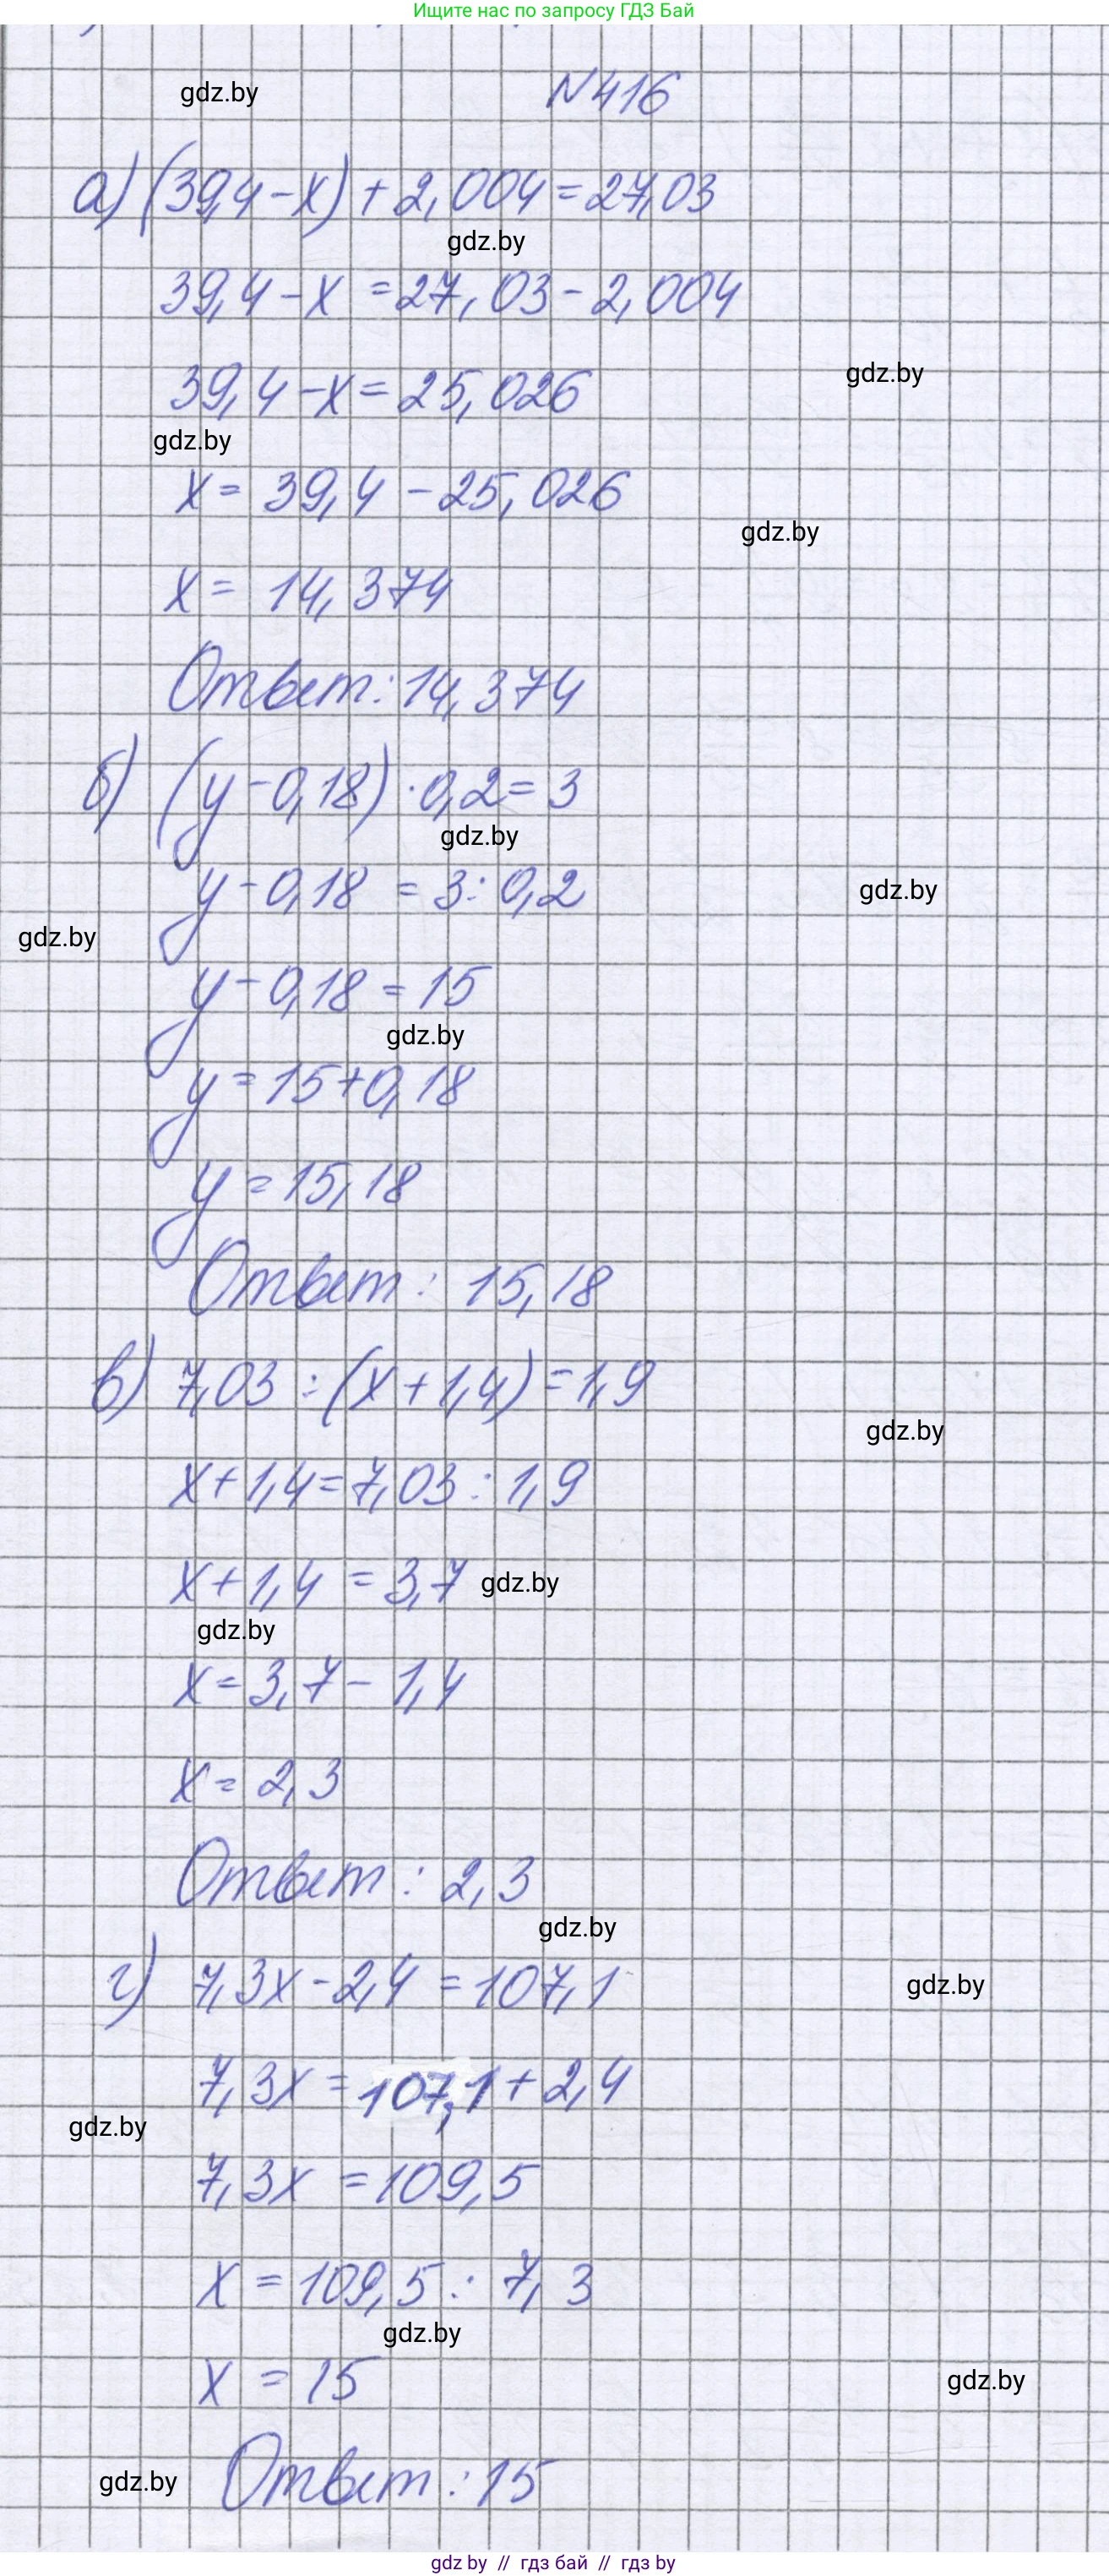 Ищите нас по запросу ГДЗ Бай
gdz.by
N416
а) (39,4-x)+2,004=27,03
gdz.by
39,4-x=27,03-2,004
gdz.by
39,4-x=25,026
gdz.by
x=39,4-25,026
gdz.by
x=14,374
Ответ: 14,374
б) (y-0,18)·0,2=3
gdz.by
y-0,18=3:0,2
gdz.by
gdz.by
y-0,18=15
gdz.by
y=15+0,18
y=15,18
Ответ: 15,18
в) 7,03:(x+1,4)=1,9
gdz.by
x+1,4=7,03:1,9
x+1,4=3,7
gdz.by
gdz.by
x=3,7-1,4
x=2,3
Ответ: 2,3
gdz.by
г) 7,3x-2,4=107,1
gdz.by
7,3x=107,1+2,4
gdz.by
7,3x=109,5
x=109,5:7,3
gdz.by
x=15
gdz.by
Ответ: 15
gdz.by
gdz by // гдз бай // гдз by